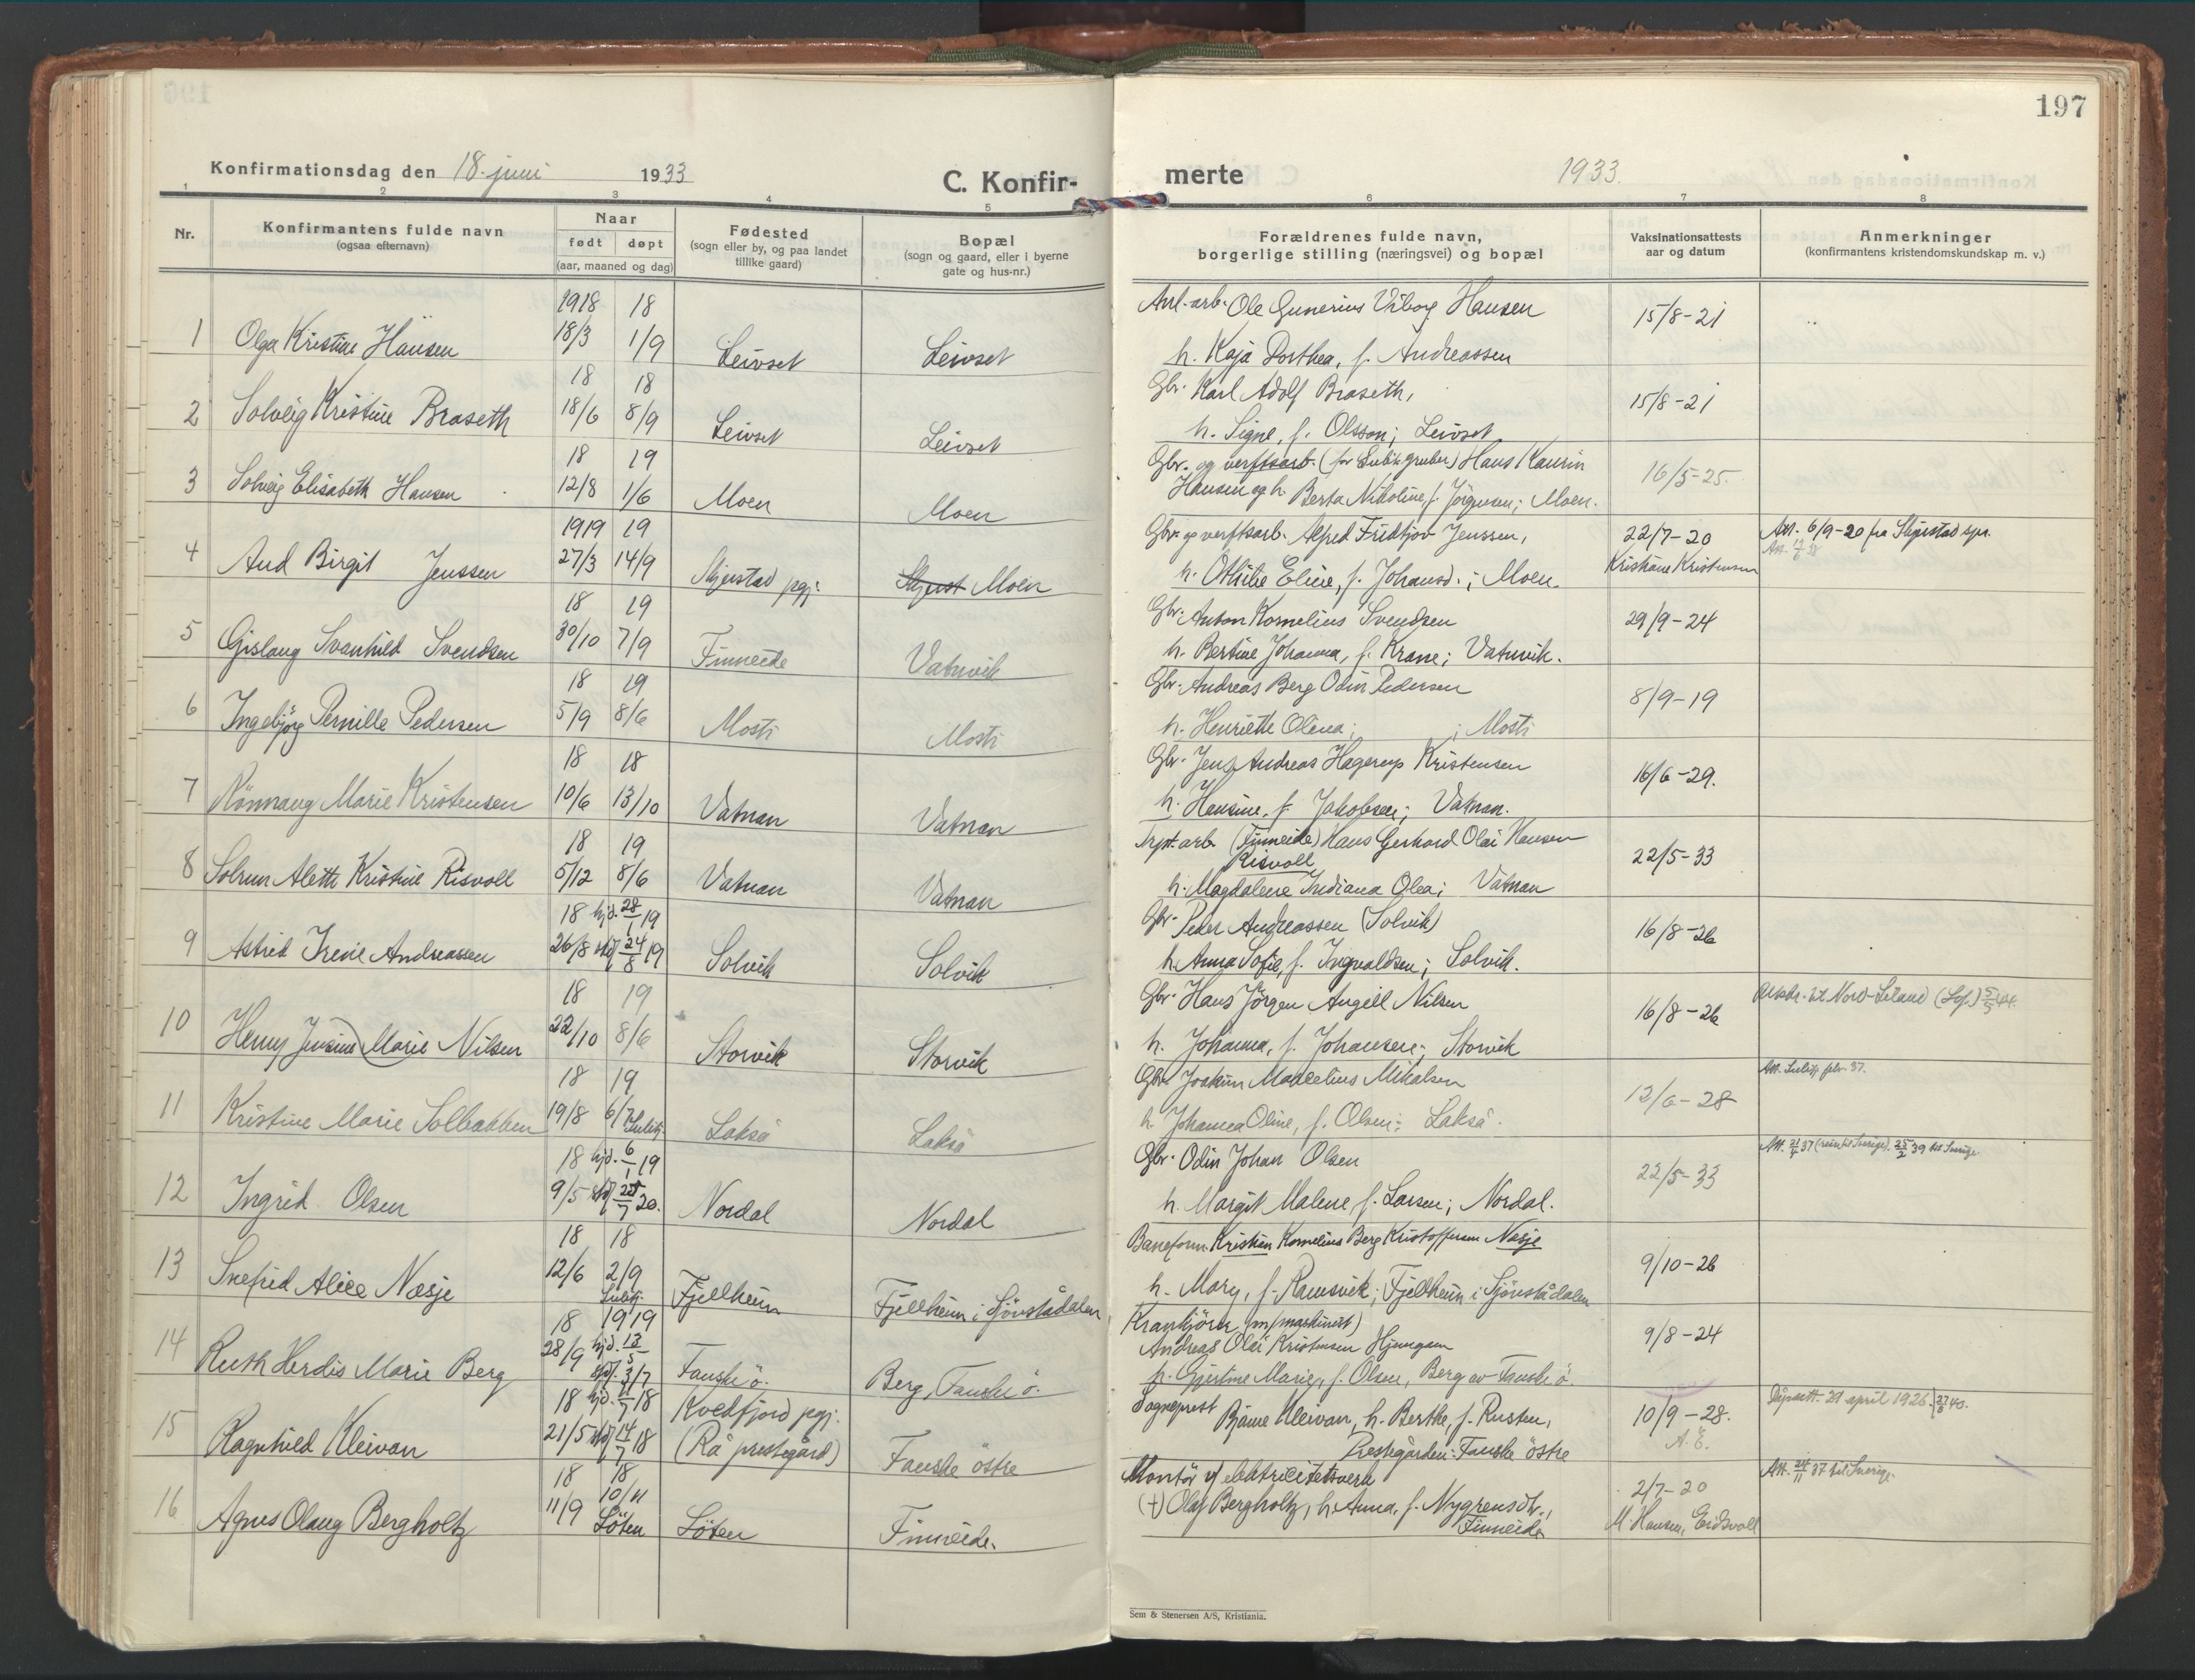 197
Konfirmationsdag den 18. juni 1933
C. Konfir-
merte
1933.
1 2 3 4 5 6 7 8
Nr.
Konfirmantens fulde navn
(ogsaa efternavn)
Naar
født døpt
(aar, maaned og dag)
Fødested
(sogn eller by, og paa landet
tillike gaard)
Bopæl
(sogn og gaard, eller i byerne
gate og hus-nr.)
Forældrenes fulde navn,
borgerlige stilling (næringsvei) og bopæl
Vaksinationsattests
aar og datum
Anmerkninger
(konfirmantens kristendomskundskap m. v.)
1918 18
1 Olga Kristine Hansen 18/3 1/9 Leivset Leivset
Anl.-arb. Ole Gunerius Viborg Hansen
h. Kaja Dorthea, f. Andreassen
15/8-21
18 18
2 Solveig Kristine Braseth 18/6 8/9 Leivset Leivset
Gbr. Karl Adolf Braseth,
h. Signe, f. Olsson; Leivset
15/8-21
18 19
3 Solveig Elisabeth Hansen 12/8 1/6 Moen Moen
Gbr. og verftsarb. (for Sulit. gruber) Hans Kaurin
Hansen og h. Berta Nikoline, f. Jörgensen; Moen.
16/5-25.
1919 19
4 Aud Birgit Jenssen 27/3 14/9 Skjerstad pgj. Skjerst Moen
Gbr. og verftsarb. Alfred Fridtjov Jenssen,
h. Othilie Eline, f. Johansd.; Moen.
22/7-20
Kristiane Kristensen
Att. 6/9-20 fra Skjerstad spr.
18 19
5 Gislaug Svanhild Svendsen 30/10 7/9 Finneide Vatnvik
Gbr. Anton Kornelius Svendsen
h. Bertine Johanna, f. Krane; Vatnvik.
29/9-24
18 19
6 Ingebjörg Pernille Pedersen 5/9 8/6 Mosti Mosti
Gbr. Andreas Berg Odin Pedersen
h. Henriette Olena; ; Mosti
8/9-19
18 18
7 Rönnaug Marie Kristensen 10/6 13/10 Vatnan Vatnan
Gbr. Jens Andreas Hagerup Kristensen
h. Hansine, f. Jakobsen; Vatnan.
16/6-29.
18 19
8 Solrun Alette Kristine Risvoll 5/12 8/6 Vatnan Vatnan
arb. (Finneide) Hans Gerhard Olai Hansen
Risvoll
h. Magdalene Indiana Olea; Vatnan
22/5-33
18 hjd. 28/1 19
9 Astrid Irene Andreassen 26/8 stdf. 24/8 19 Solvik Solvik
Gbr. Peder Andreassen (Solvik)
h. Anna Sofie, f. Ingvaldsen; Solvik.
16/8-26
18 19
10 Henny Jensine Marie Nilsen 22/10 8/6 Storvik Storvik
Gbr. Hans Jörgen Angell Nilsen
h. Johanna, f. Johansen; Storvik
16/8-26
18 19
11 Kristine Marie Solbakken 19/8 6/7 Sulitj. Lakså Lakså
Gbr. Joakim Marcelius Mikalsen
h. Johanna Oline, f. Olsen; Lakså.
12/6-28
Att. Sulitj. febr. 37.
18 hjd. 6/1 19
12 Ingrid Olsen 9/5 stdf. 25/7 20. Nordal Nordal
Gbr. Odin Johan Olsen
h. Margit Malene f. Larsen; Nordal.
22/5-33
Att. 21/4 37 (reise til Sverige). 25/2 39 til Sverige
18 18
13 Snefrid Alice Næsje 12/6 2/9 Sulitj. Fjellheim Fjellheim i Sjönstådalen
Baneform. Kristian Kornelius Berg Kristoffersen Næsje
h. Mary, f. Ramsvik; Fjellheim i Sjönstådalen
9/10-26
18 1919
14 Ruth Herdis Marie Berg 28/9 hjd. 13/5 stdf. 3/7 Fauske ö. Berg, Fauske ö.
Krankjörer (m/maskinist)
Andreas Olai Kristensen Hjemgam
h. Gjertine Marie, f. Olsen, Berg av Fauske ö.
9/8-24
18 hjd. 11/7 18
15 Ragnhild Kleivan 21/5 stdf. 14/7 18 Kvedfjord pgj. (Rå prestegård) Fauske östre
Sogneprest Bjarne Kleivan, h. Berthe, f. Rusten,
Prestegården: Fauske östre
10/9-28.
A. E.
Dåpsatt. 29 april 1926.
18 18
16 Agnes Olaug Bergholtz 11/9 10/11 Löten Löten Finneide.
Montör v/ elektricitetsverk
(+) Olaf Bergholtz, h. Anna, f. Nygrensdtr.,
Finneide
2/7-20
M. Hansen, Eidsvoll
Att. 24/11 37 til Sverige.
Sem & Stenersen A/S, Kristiania.